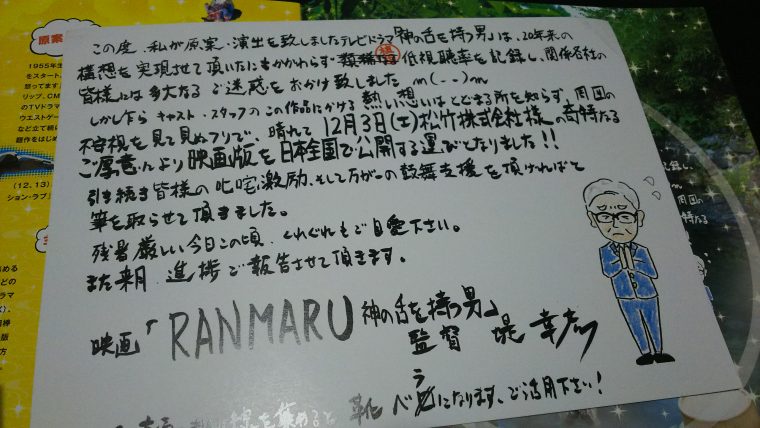 原案
1955年生
をスタート。
怒ってます」
リップ、CM
のTVドラマ
ウエストゲー
など立て続け
(12、13)
ション・ラブ」
この度、私が原案・演出を致しましたテレビドラマ「神の舌を持つ男」は、20年来の
構想を実現させて頂いたにもかかわらず 低視聴率を記録し、関係各社の
皆様には多大なるご迷惑をおかけ致しました m(--)m
しかしながら キャスト・スタッフのこの作品にかける熱い想いはとどまる所を知らず、周囲の
不安視を見て見ぬフリで、晴れて12月3日(土)松竹株式会社様の奇特なる
ご厚意により映画版を日本全国で公開する運びとなりました!!
引き続き皆様の叱咤激励、そして万が一の鼓舞支援を頂ければと
筆を取らせて頂きました。
残暑厳しい今日この頃、くれぐれもご自愛下さい。
また来月、進捗ご報告させて頂きます。
映画「RANMARU 神の舌を持つ男」
監督 堤 幸彦
を集めると 靴ベラになります、ご活用下さい!